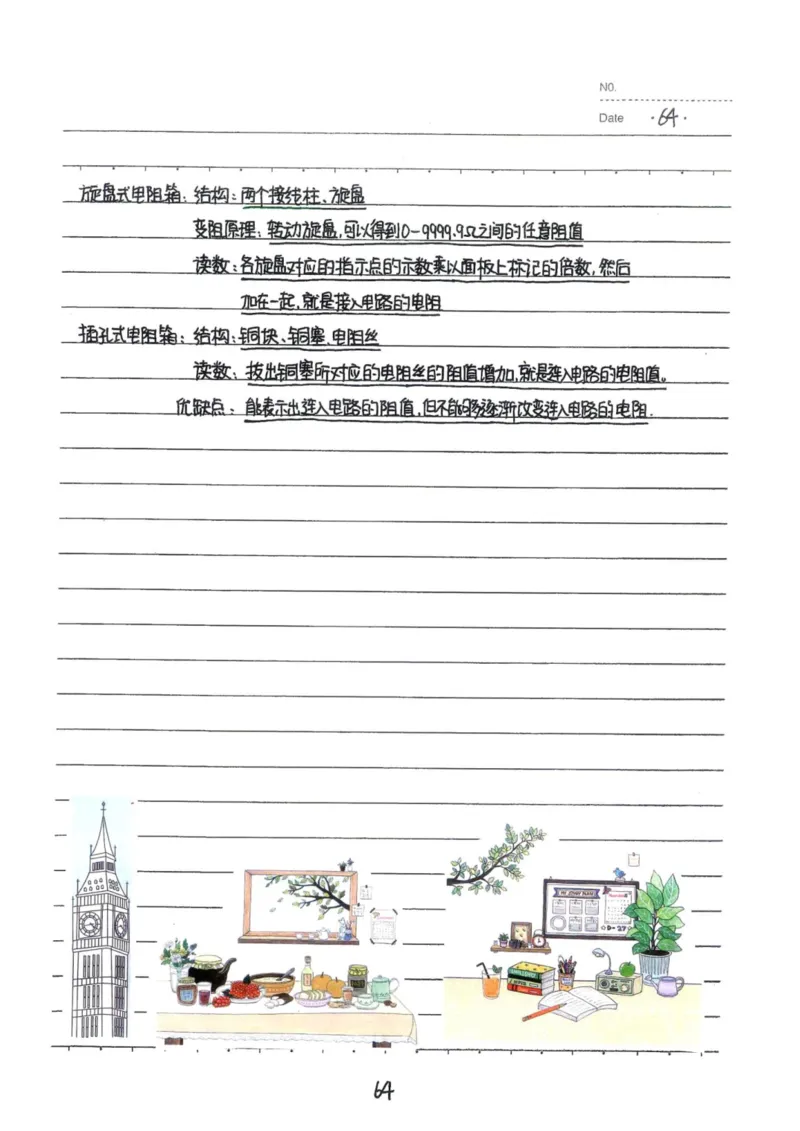 NO.
Date ·64·
旋盘式电阻箱：结构：两个接线柱、旋盘
变阻原理：转动旋盘，可以得到0-9999.9Ω之间的任意阻值
读数：各旋盘对应的指示点的示数乘以面板上标记的倍数，然后
加在一起，就是接入电路的电阻
插孔式电阻箱：结构：铜块、铜塞、电阻丝
读数：拔出铜塞所对应的电阻丝的阻值增加，就是连入电路的电阻值。
优缺点：能表示出连入电路的阻值，但不能够逐渐改变连入电路的电阻.
64